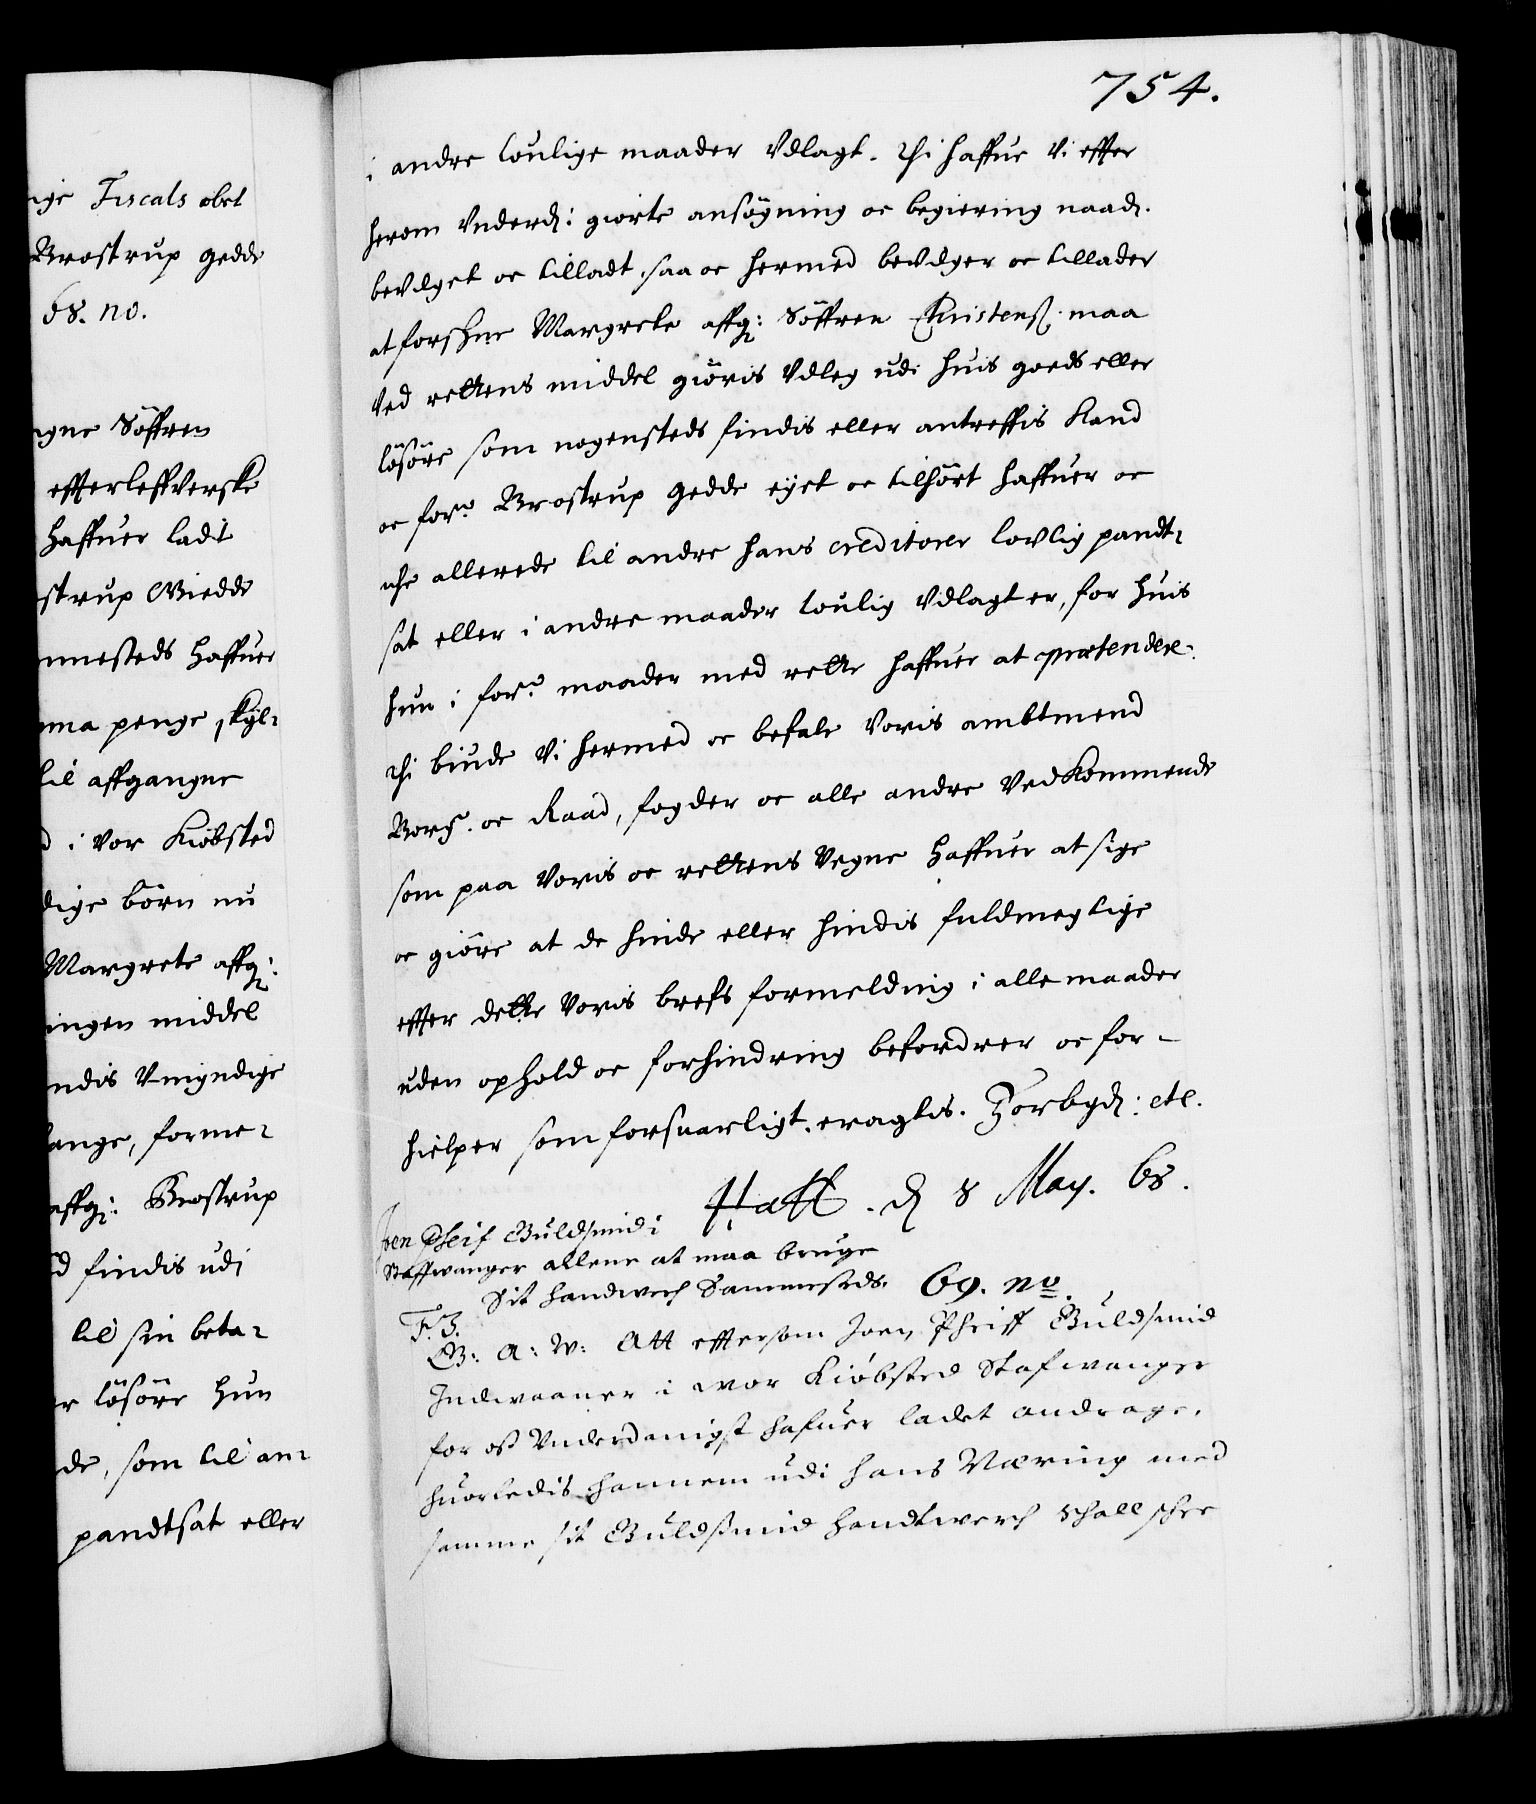 nge Fiscals obet
Brostrup gedde
68. no.
ngne Söffren
efferleffverske
haffuer ladt
strup Giedde
mmesteds haffuer
mma penge skyl-
til affgangne
d i vor Kiöbsted
dige börn nu
Margrete affg:
ingen middel
ndis Vmyndige
lange, forme-
affg: Brostrup
d findis udi
til sin beta-
er lösöre hun
de, som til an-
pandtsat eller
754.
i andre loulige maader Vdlagt. Thi haffue Vi effter
herom Vnderd: giorte ansögning oc begiering naad.
bevilget oc tilladt, saa oc hermed bevilger oc tillader
at forschne Margrete affg: Söffren Christens. maa
Ved rettens middel giöris Vdleg udi huis goeds eller
lösöre som nogensteds findis eller antreffis Kand
oc forne Brostrup gedde eyet oc tilhört haffuer oc
iche allerede til andre hans creditorer lovlig pandt-
sat eller i andre maader loulig Vdlagt er, for huis
hun i forne maader med rette haffuer at prætendere.
Thi biude Vi hermed oc befale Voris ambtmend
Borg. oc Raad, fogder oc alle andre VedKommende
som paa Voris oc rettens Vegne haffuer at sige
oc giöre at de hinde eller hindis fuldmegtige
effter dette Voris brefs formelding i alle maader
uden ophold oc forhindring befordrer oc for-
hielper som forsuarligt eragtis. Forbyd: etc.
Haff. d 8 May. 68.
Joen Pheif Guldsmid i
Staffwanger allene at maa bruge
Sit handwerch Sammesteds. 69. no.
F. 3.
G: A: W: Att effterson Joen Pheiff Guldsmid
Indwaaner i wor Kiöbsted Stafwanger
for oß Vnderdanigst hafuer ladet andrage,
huorledis hannem udi hans Næring med
samme sit Guldsmid handtwerch schall schee